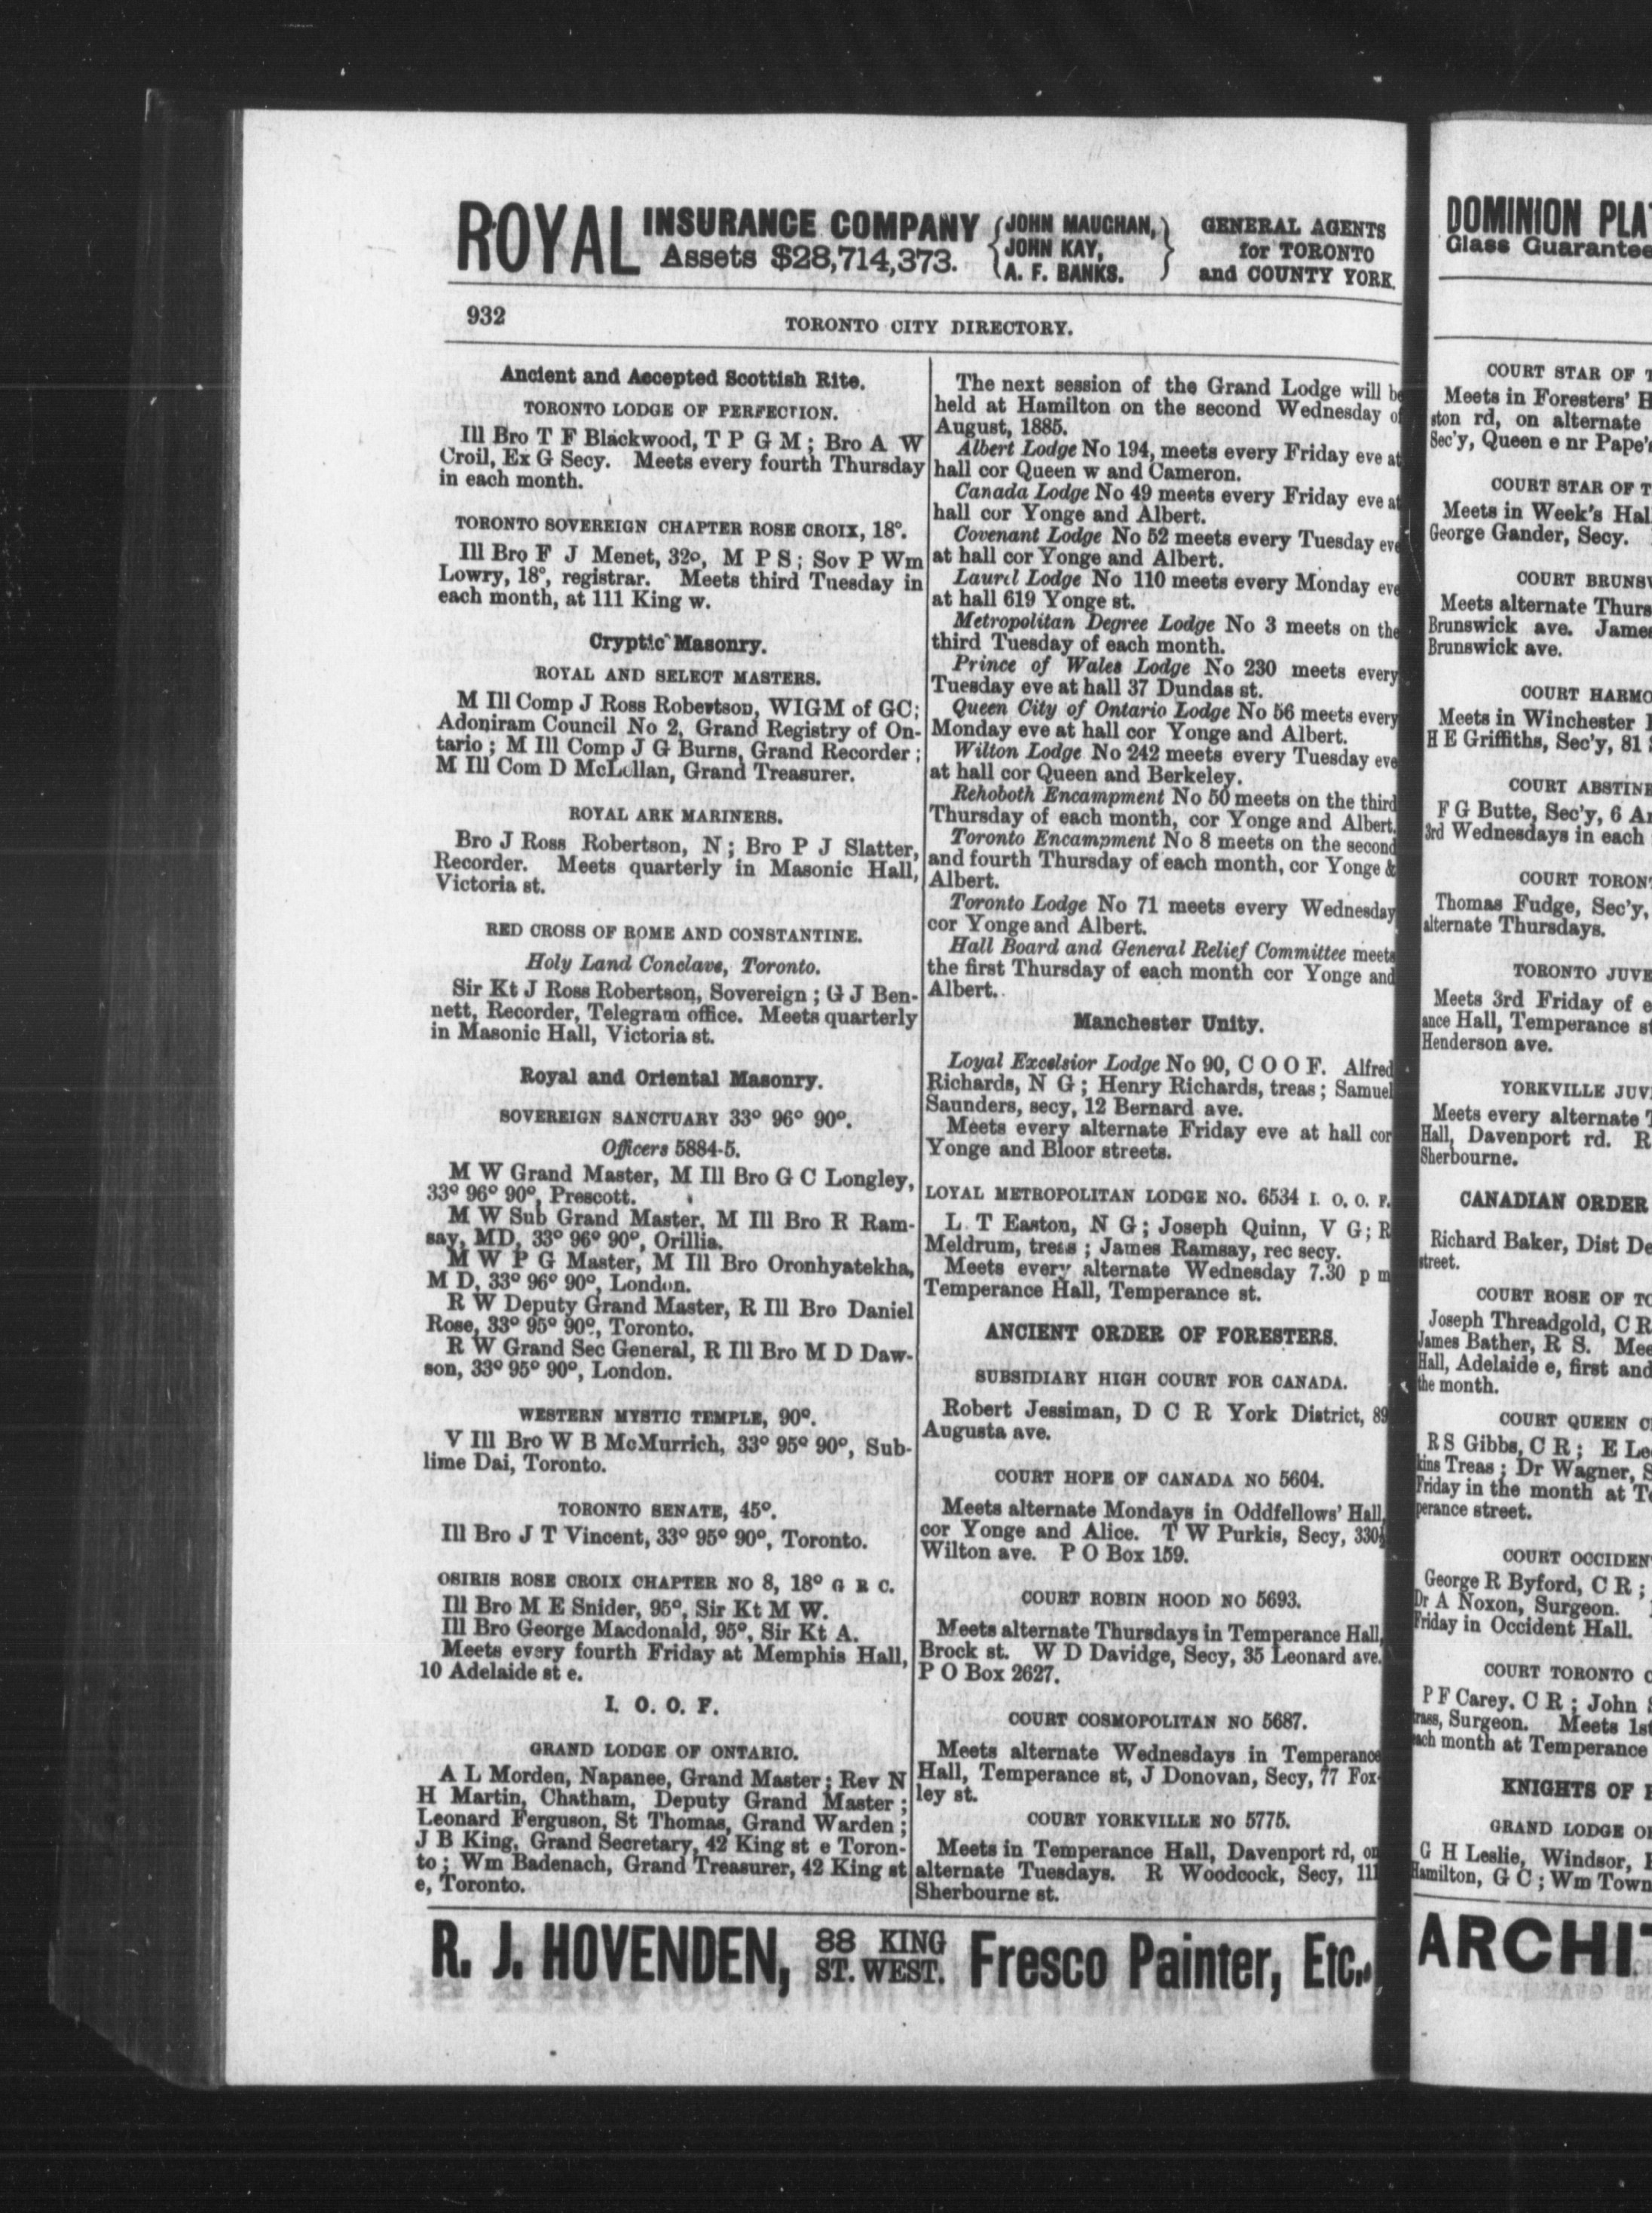 ROYAL INSURANCE COMPANY
Assets $28,714,373.
JOHN MAUGHAN,
JOHN KAY,
A. F. BANKS.
GENERAL AGENTS
for TORONTO
and COUNTY YORK.
932
TORONTO CITY DIRECTORY.
Ancient and Accepted Scottish Rite.
TORONTO LODGE OF PERFECTION.
Ill Bro T F Blackwood, T P G M; Bro A W
Croil, Ex G Secy. Meets every fourth Thursday
in each month.
TORONTO SOVEREIGN CHAPTER ROSE CROIX, 18°.
Ill Bro F J Menet, 32o, M P S; Sov P Wm
Lowry, 18°, registrar. Meets third Tuesday in
each month, at 111 King w.
Cryptic Masonry.
ROYAL AND SELECT MASTERS.
M Ill Comp J Ross Robertson, WIGM of GC;
Adoniram Council No 2, Grand Registry of On-
tario; M Ill Comp J G Burns, Grand Recorder;
M Ill Com D McLellan, Grand Treasurer.
ROYAL ARK MARINERS.
Bro J Ross Robertson, N; Bro P J Slatter,
Recorder. Meets quarterly in Masonic Hall,
Victoria st.
RED CROSS OF ROME AND CONSTANTINE.
Holy Land Conclave, Toronto.
Sir Kt J Ross Robertson, Sovereign; G J Ben-
nett, Recorder, Telegram office. Meets quarterly
in Masonic Hall, Victoria st.
Royal and Oriental Masonry.
SOVEREIGN SANCTUARY 33° 96° 90°.
Officers 5884-5.
M W Grand Master, M Ill Bro G C Longley,
33° 96° 90°, Prescott.
M W Sub Grand Master, M Ill Bro R Ram-
say, MD, 33° 96° 90°, Orillia.
M W P G Master, M Ill Bro Oronhyatekha,
M D, 33° 96° 90°, London.
R W Deputy Grand Master, R Ill Bro Daniel
Rose, 33° 95° 90°, Toronto.
R W Grand Sec General, R Ill Bro M D Daw-
son, 33° 95° 90°, London.
WESTERN MYSTIC TEMPLE, 90°.
V Ill Bro W B McMurrich, 33° 95° 90°, Sub-
lime Dai, Toronto.
TORONTO SENATE, 45°.
Ill Bro J T Vincent, 33° 95° 90°, Toronto.
OSIRIS ROSE CROIX CHAPTER NO 8, 18° G R C.
Ill Bro M E Snider, 95°, Sir Kt M W.
Ill Bro George Macdonald, 95°, Sir Kt A.
Meets every fourth Friday at Memphis Hall,
10 Adelaide st e.
I. O. O. F.
GRAND LODGE OF ONTARIO.
A L Morden, Napanee, Grand Master; Rev N
H Martin, Chatham, Deputy Grand Master;
Leonard Ferguson, St Thomas, Grand Warden;
J B King, Grand Secretary, 42 King st e Toron-
to; Wm Badenach, Grand Treasurer, 42 King st
e, Toronto.
The next session of the Grand Lodge will be
held at Hamilton on the second Wednesday of
August, 1885.
Albert Lodge No 194, meets every Friday eve at
hall cor Queen w and Cameron.
Canada Lodge No 49 meets every Friday eve at
hall cor Yonge and Albert.
Covenant Lodge No 52 meets every Tuesday eve
at hall cor Yonge and Albert.
Laurel Lodge No 110 meets every Monday eve
at hall 619 Yonge st.
Metropolitan Degree Lodge No 3 meets on the
third Tuesday of each month.
Prince of Wales Lodge No 230 meets every
Tuesday eve at hall 37 Dundas st.
Queen City of Ontario Lodge No 56 meets every
Monday eve at hall cor Yonge and Albert.
Wilton Lodge No 242 meets every Tuesday eve
at hall cor Queen and Berkeley.
Rehoboth Encampment No 50 meets on the third
Thursday of each month, cor Yonge and Albert.
Toronto Encampment No 8 meets on the second
and fourth Thursday of each month, cor Yonge &
Albert.
Toronto Lodge No 71 meets every Wednesday
cor Yonge and Albert.
Hall Board and General Relief Committee meets
the first Thursday of each month cor Yonge and
Albert.
Manchester Unity.
Loyal Excelsior Lodge No 90, C O O F. Alfred
Richards, N G; Henry Richards, treas; Samuel
Saunders, secy, 12 Bernard ave.
Meets every alternate Friday eve at hall cor
Yonge and Bloor streets.
LOYAL METROPOLITAN LODGE NO. 6534 I. O. O. F.
L T Easton, N G; Joseph Quinn, V G; R
Meldrum, treas; James Ramsay, rec secy.
Meets every alternate Wednesday 7.30 p m
Temperance Hall, Temperance st.
ANCIENT ORDER OF FORESTERS.
SUBSIDIARY HIGH COURT FOR CANADA.
Robert Jessiman, D C R York District, 89
Augusta ave.
COURT HOPE OF CANADA NO 5604.
Meets alternate Mondays in Oddfellows' Hall,
cor Yonge and Alice. T W Purkis, Secy, 330½
Wilton ave. P O Box 159.
COURT ROBIN HOOD NO 5693.
Meets alternate Thursdays in Temperance Hall,
Brock st. W D Davidge, Secy, 35 Leonard ave.
P O Box 2627.
COURT COSMOPOLITAN NO 5687.
Meets alternate Wednesdays in Temperance
Hall, Temperance st, J Donovan, Secy, 77 Fox-
ley st.
COURT YORKVILLE NO 5775.
Meets in Temperance Hall, Davenport rd, on
alternate Tuesdays. R Woodcock, Secy, 111
Sherbourne st.
R. J. HOVENDEN, 88 KING ST. WEST. Fresco Painter, Etc.,
DOMINION PLA
Glass Guarantee
COURT STAR OF
Meets in Foresters' H
ston rd, on alternate
Sec'y, Queen e nr Pape's
COURT STAR OF T
Meets in Week's Hal
George Gander, Secy.
COURT BRUNS
Meets alternate Thurs
Brunswick ave. James
Brunswick ave.
COURT HARMO
Meets in Winchester
H E Griffiths, Sec'y, 81
COURT ABSTINE
F G Butte, Sec'y, 6 A
3rd Wednesdays in each
COURT TORON
Thomas Fudge, Sec'y,
alternate Thursdays.
TORONTO JUVE
Meets 3rd Friday of e
ance Hall, Temperance st
Henderson ave.
YORKVILLE JUV
Meets every alternate
Hall, Davenport rd. R
Sherbourne.
CANADIAN ORDER
Richard Baker, Dist De
street.
COURT ROSE OF TO
Joseph Threadgold, C R
James Bather, R S. Mee
Hall, Adelaide e, first and
the month.
COURT QUEEN C
R S Gibbs, C R; E Le
kins Treas; Dr Wagner, S
Friday in the month at Te
perance street.
COURT OCCIDEN
George R Byford, C R;
Dr A Noxon, Surgeon.
Friday in Occident Hall.
COURT TORONTO C
P F Carey, C R; John
rass, Surgeon. Meets 1st
each month at Temperance
KNIGHTS OF
GRAND LODGE O
G H Leslie, Windsor,
Hamilton, G C; Wm Town
ARCHIT